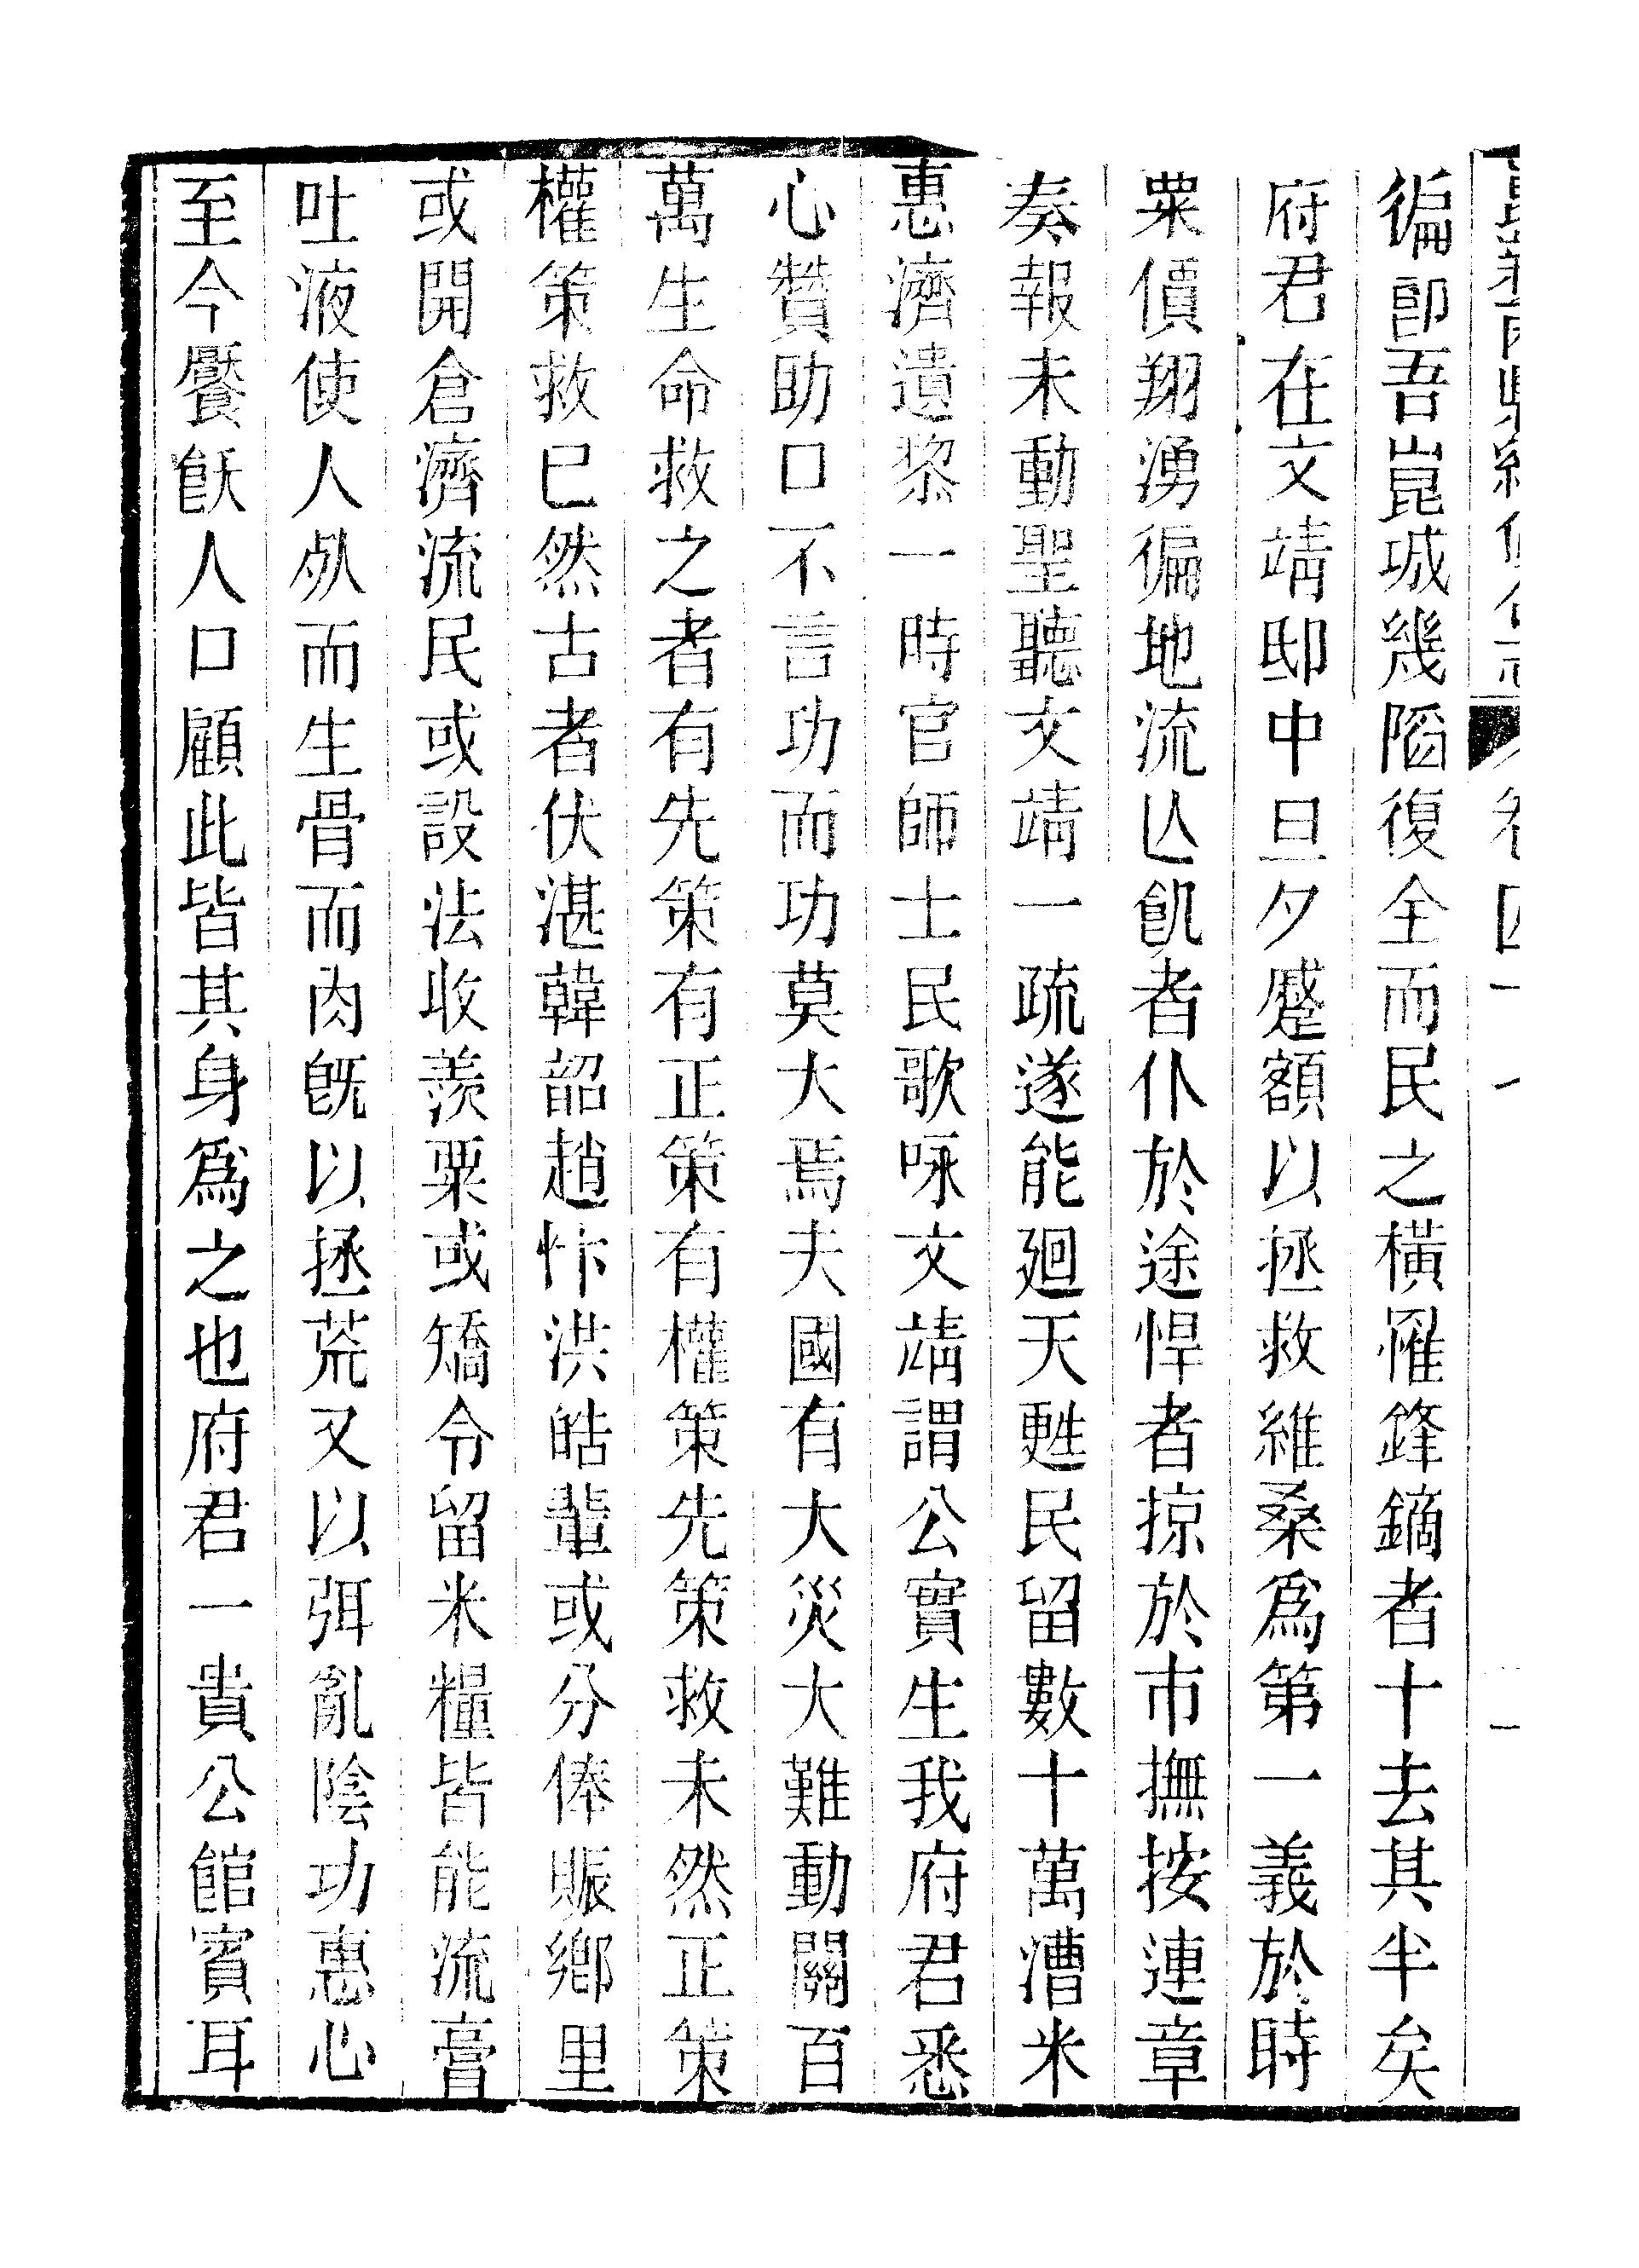 徧卽吾崑城幾陷復全而民之橫罹鋒鏑者十去其半矣
府君在文靖邸中旦夕蹙額以拯救維桑爲第一義於時
粟價翔湧徧地流亾飢者仆於途悍者掠於市撫按連章
奏報未動聖聽文靖一疏遂能廻天甦民留數十萬漕米
惠濟遺黎一時官師士民歌咏文靖謂公實生我府君悉
心贊助口不言功而功莫大焉夫國有大災大難動關百
萬生命救之者有先策有正策有權策先策救未然正策
權策救已然古者伏湛韓韶趙忭洪皓輩或分俸賑鄉里
或開倉濟流民或設法收羨粟或矯令留米糧皆能流膏
吐液使人㱥而生骨而肉旣以拯荒又以弭亂陰功惠心
至今饜飫人口顧此皆其身爲之也府君一貴公館賓耳